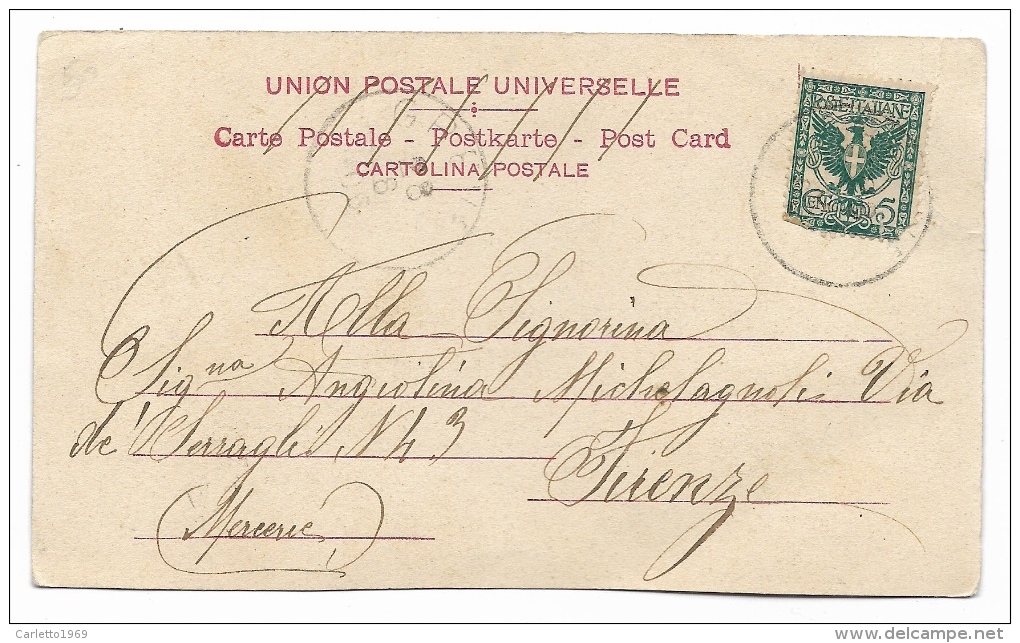 UNION POSTALE UNIVERSELLE
Carte Postale - Postkarte - Post Card
CARTOLINA POSTALE
POSTE·ITALIANE
CENT. 5
Alla Signorina
Sig na Angiolina Michelagnoli Via
de' Serragli N 43
Firenze
(Mercerie)
Carletto1969
delcampe.net